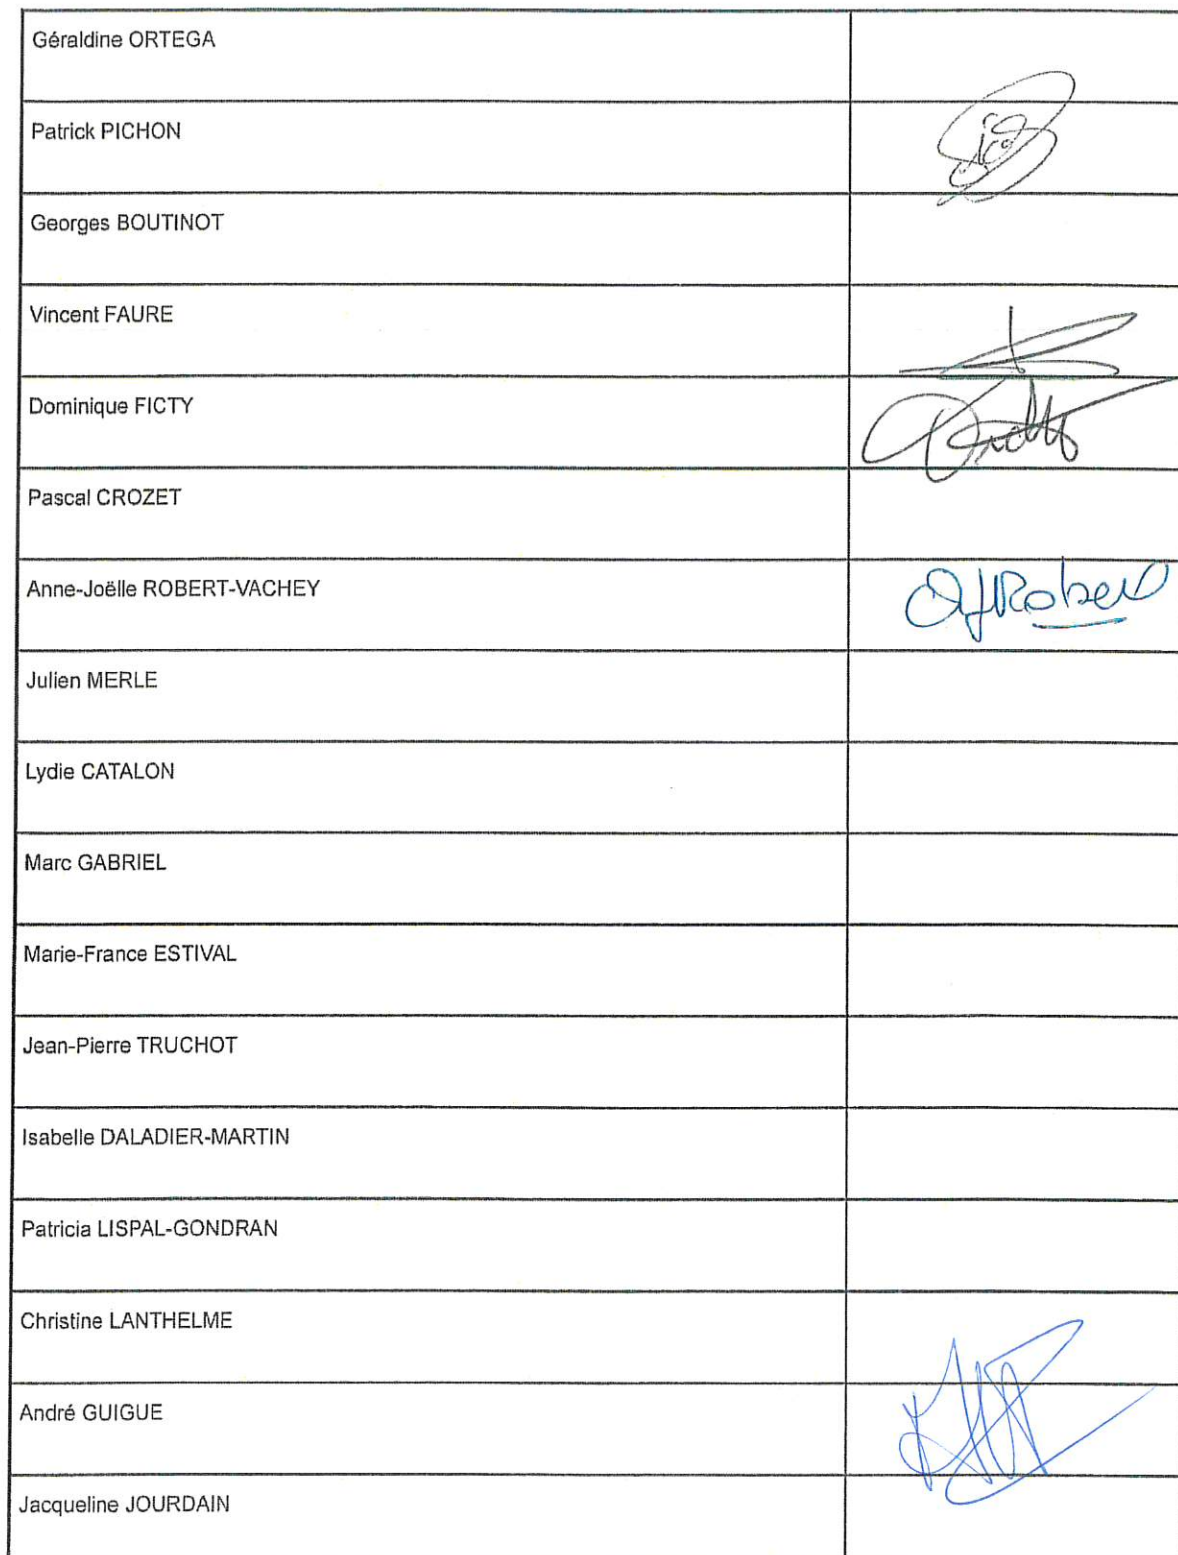 Géraldine ORTEGA
Patrick PICHON
Georges BOUTINOT
Vincent FAURE
Dominique FICTY
Pascal CROZET
Anne-Joëlle ROBERT-VACHEY
AJRobert
Julien MERLE
Lydie CATALON
Marc GABRIEL
Marie-France ESTIVAL
Jean-Pierre TRUCHOT
Isabelle DALADIER-MARTIN
Patricia LISPAL-GONDRAN
Christine LANTHELME
André GUIGUE
Jacqueline JOURDAIN